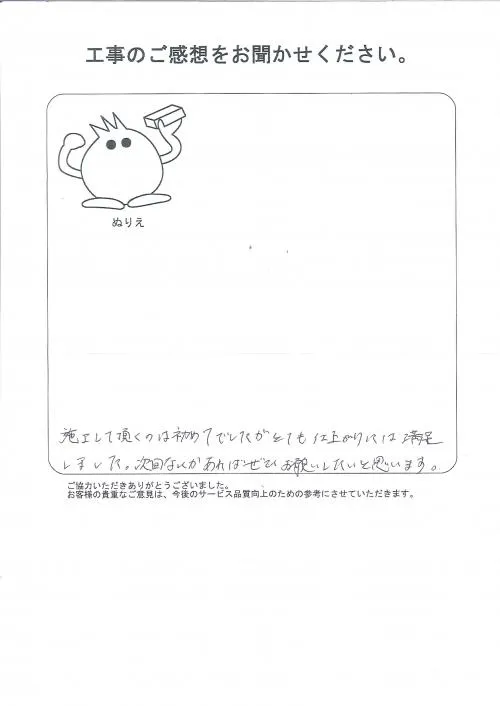 工事のご感想をお聞かせください。
ぬりえ
施工して頂くのは初めてでしたがとても仕上がりには満足
しました。次回なにかあればぜひお願いしたいと思います。
ご協力いただきありがとうございました。
お客様の貴重なご意見は、今後のサービス品質向上のための参考にさせていただきます。